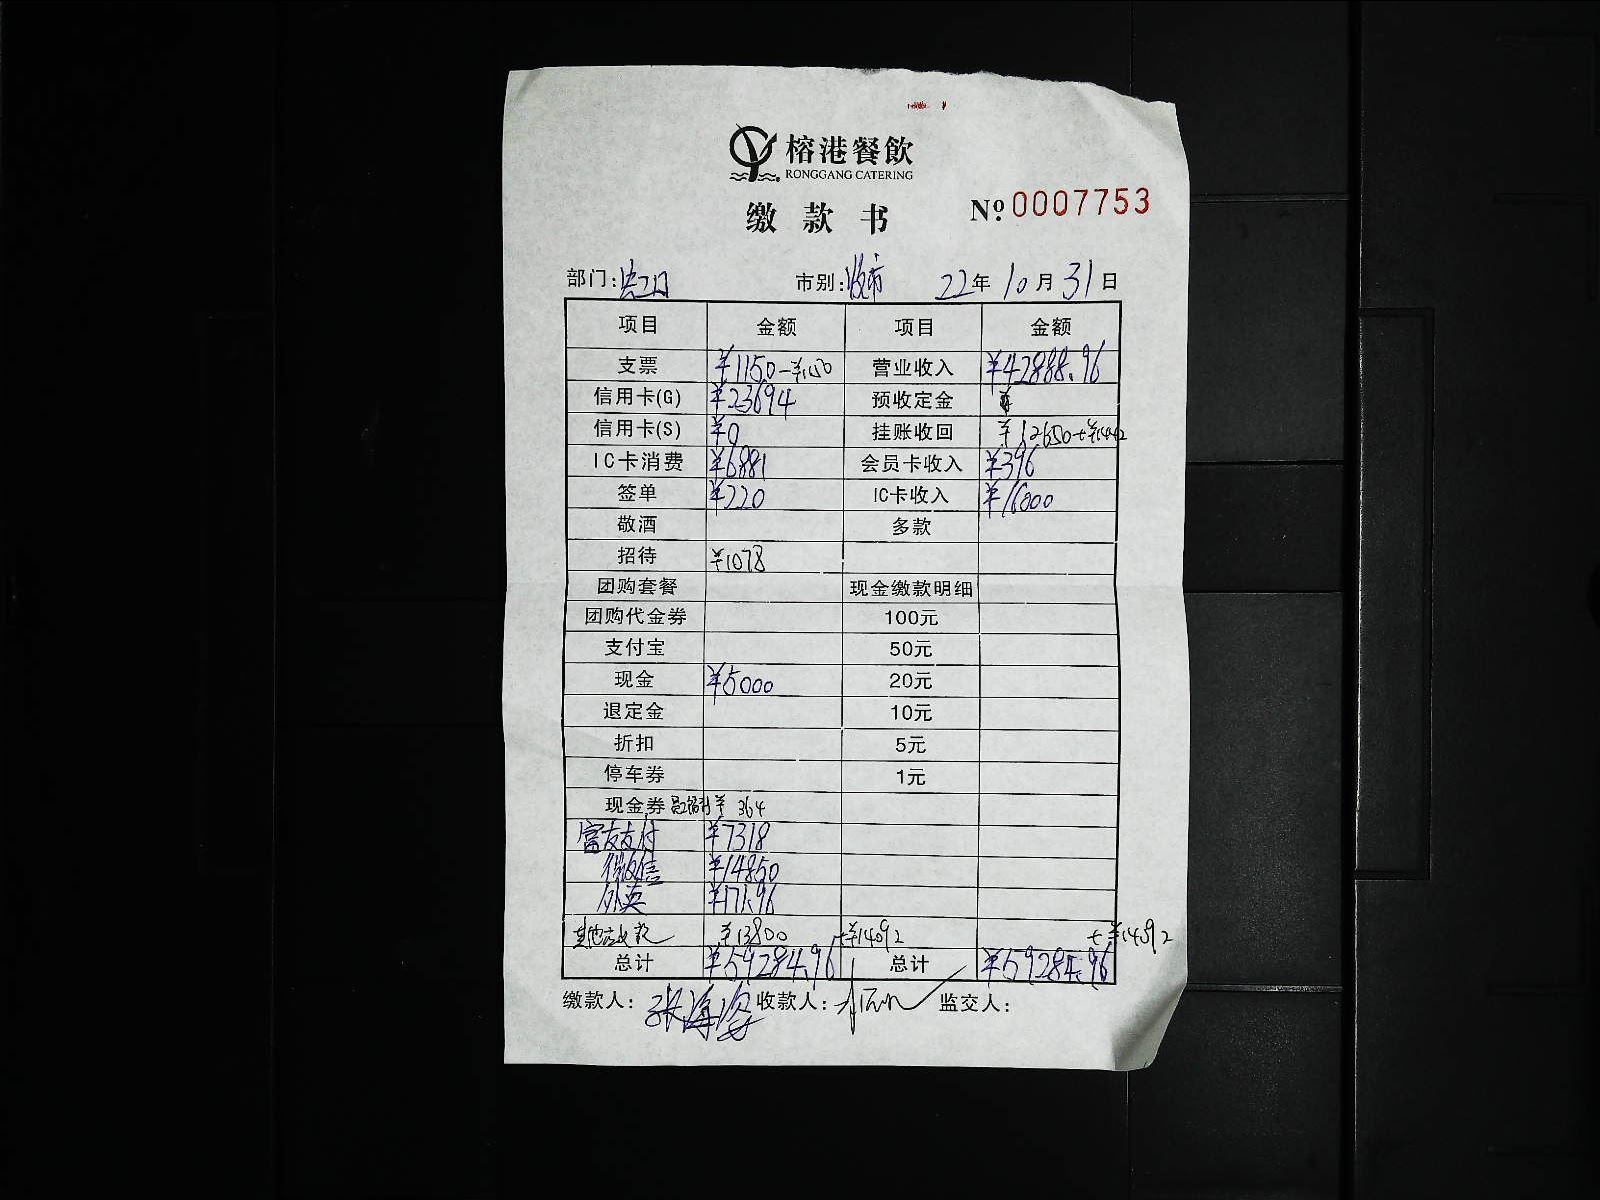 榕港餐飲
RONGGANG CATERING
缴款书 Nº 0007753
部门: 市别: 夜市 22年10月31日
项目 金额 项目 金额
支票 ¥1150 营业收入 ¥42888.96
信用卡(G) ¥23694 预收定金 ¥
信用卡(S) ¥0 挂账收回 ¥12650
IC卡消费 ¥6881 会员卡收入 ¥396
签单 ¥220 IC卡收入 ¥16000
敬酒 多款
招待 ¥1078
团购套餐 现金缴款明细
团购代金券 100元
支付宝 50元
现金 ¥5000 20元
退定金 10元
折扣 5元
停车券 1元
现金券 ¥364
富友支付 ¥7318
微信 ¥14850
¥171.96
其他应收款 ¥13800 +¥14092 +¥14092
总计 ¥59284.96 总计 ¥59284.96
缴款人: 收款人: 监交人: